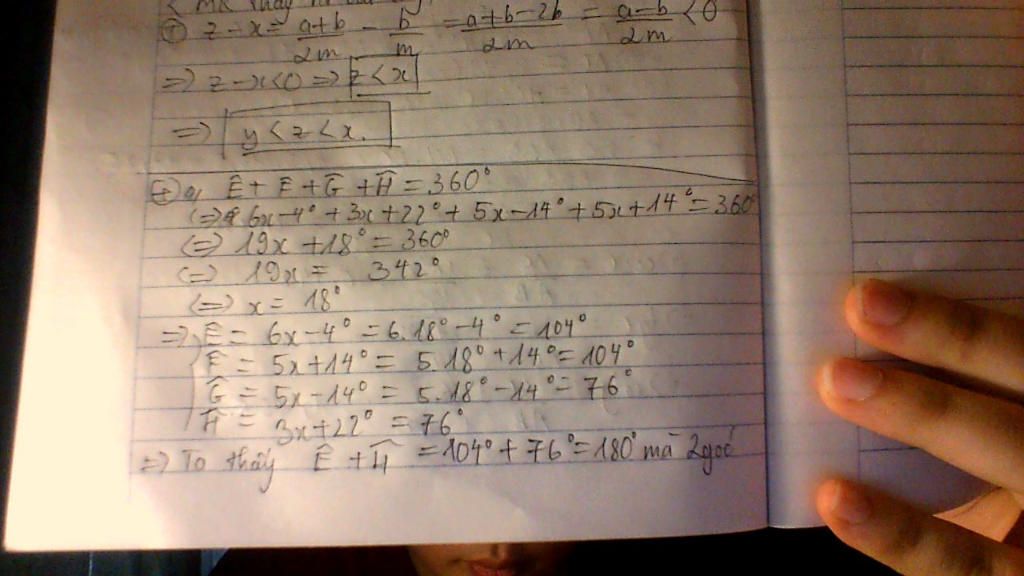 ⊕ z - x = a+b/2m - b/m = a+b-2b/2m = a-b/2m < 0
=> z - x < 0 => z < x
=> y < z < x.
⊕ a) Ê + F̂ + Ĝ + Ĥ = 360°
<=> 6x-4° + 3x+22° + 5x-14° + 5x+14° = 360°
<=> 19x + 18° = 360°
<=> 19x = 342°
<=> x = 18°
=> Ê = 6x-4° = 6.18°-4° = 104°
F̂ = 5x+14° = 5.18°+14° = 104°
Ĝ = 5x-14° = 5.18°-14° = 76°
Ĥ = 3x+22° = 76°
=> Ta thấy Ê + Ĥ = 104° + 76° = 180° mà 2 góc